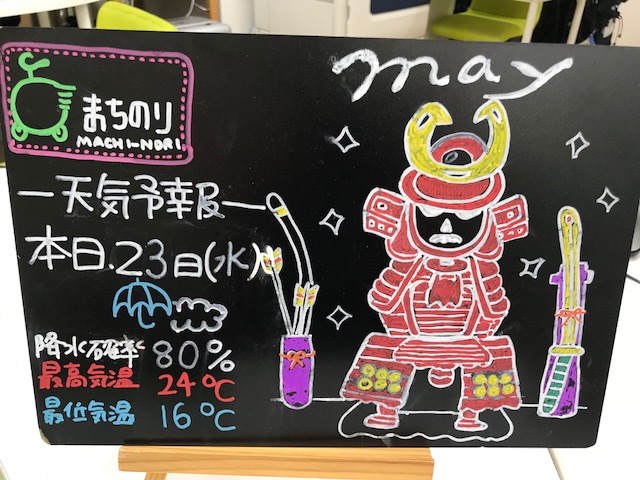 may
まちのり
MACHI-NORI
ー天気予報ー
本日.23日(水)
降水確率 80%
最高気温 24℃
最低気温 16℃